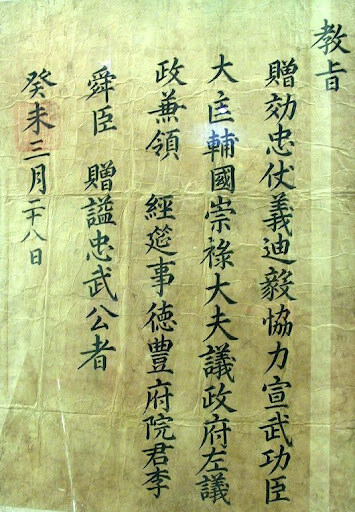 教旨
贈効忠仗義迪毅恊力宣武功臣
大匡輔國崇祿大夫議政府左議
政兼領 經筵事德豊府院君李
舜臣 贈謚忠武公者
癸未三月二十八日